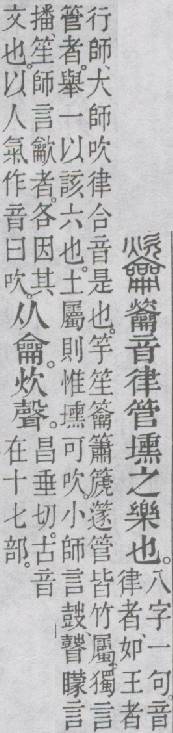 䶴 籥音律管壎之樂也。八字一句。音
律者、如王者
行師、大師吹律合音是也。竽笙籥簫篪篴管皆竹屬。獨言
管者。舉一以該六也。土屬則惟壎可吹。小師言鼓、瞽矇言
播、笙師言龡者。各因其
文也。以人氣作音曰吹。
从龠。炊聲。昌垂切。古音
在十七部。